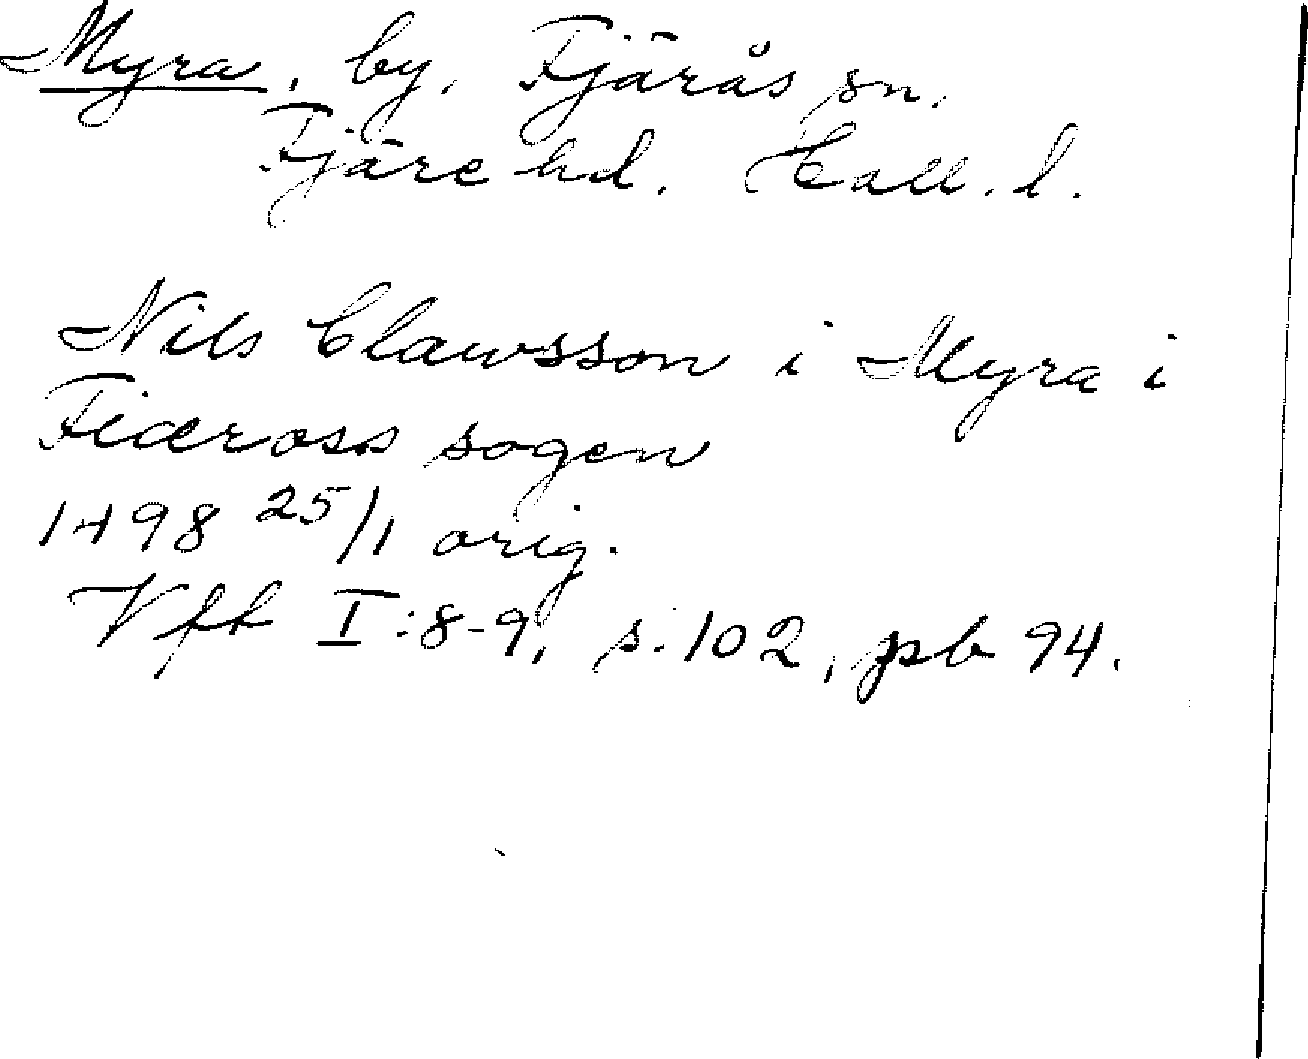 Myra, by, Fjärås sn.
Fjäre hd. Hall. l.
Nils Clawsson i Myra i
Fiæross sogen
1498 25/1 orig.
Vfft I:8-9, s. 102, psb 94.